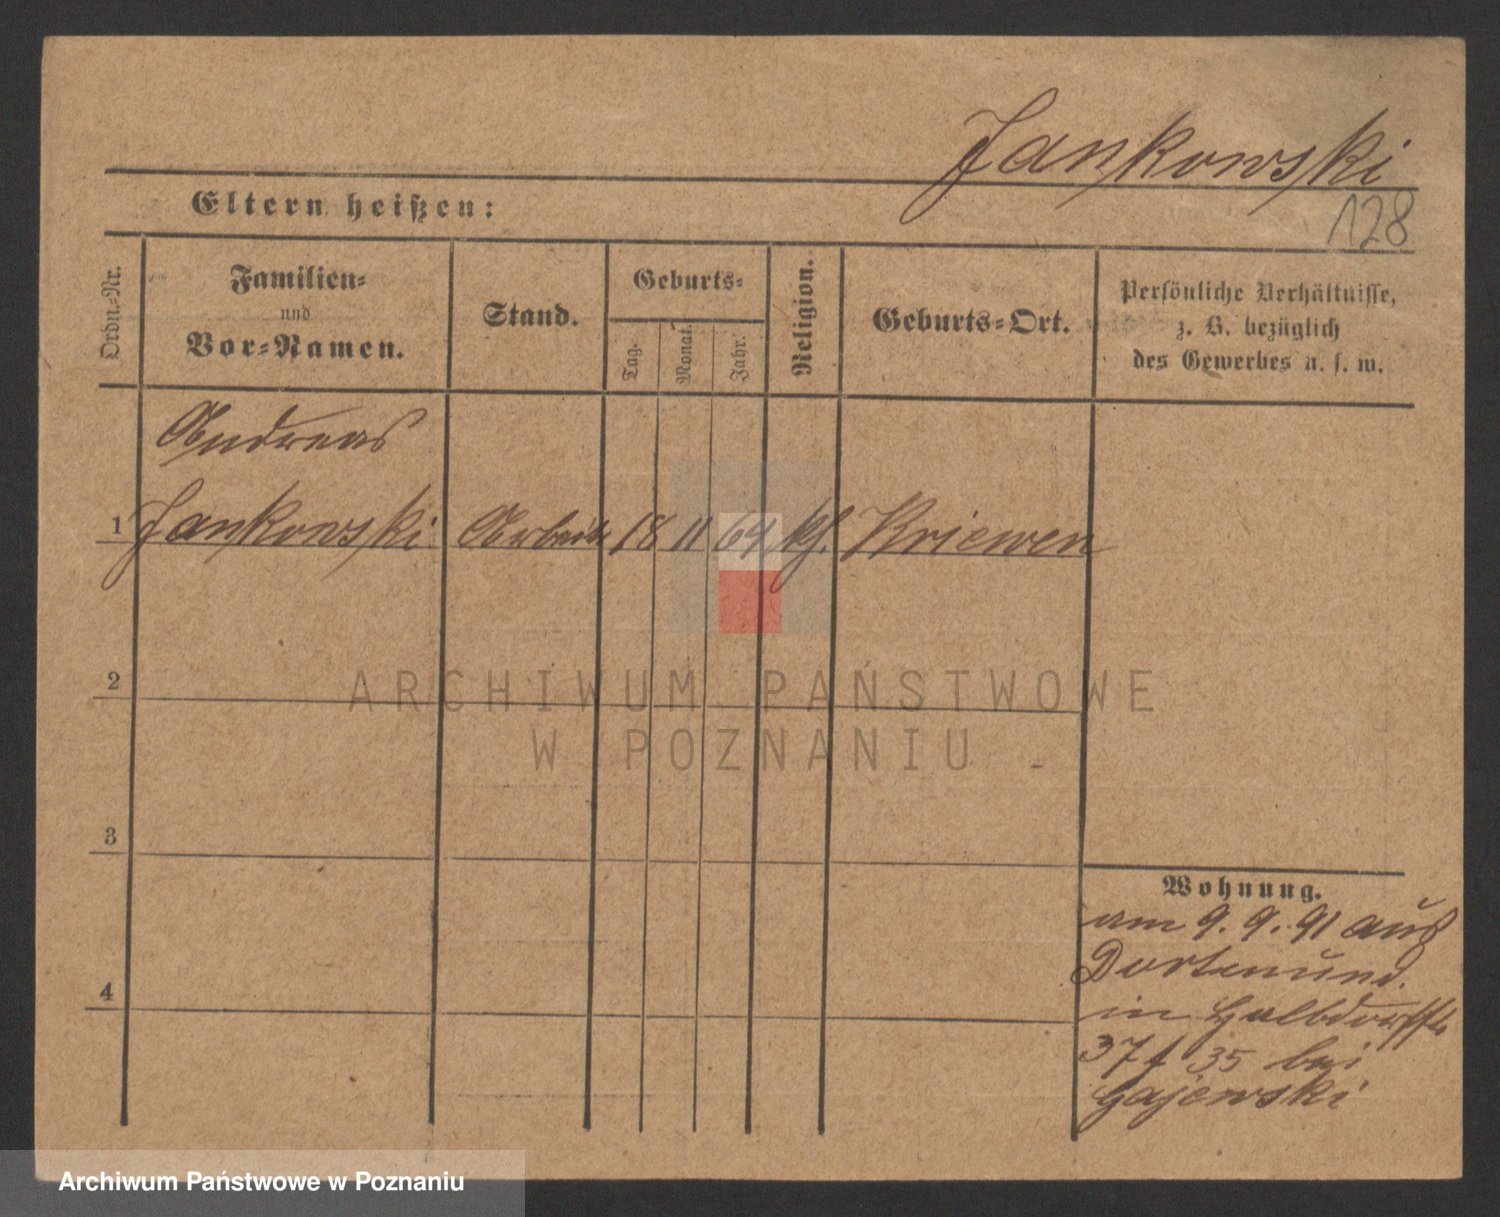 Jankowski
128
Eltern heißen:
Ordn.=Nr.
Familien=
und
Vor=Namen.
Stand.
Geburts=
Tag.
Monat.
Jahr.
Religion.
Geburts=Ort.
Persönliche Verhältnisse,
z. B. bezüglich
des Gewerbes u. s. w.
Andreas
1 Jankowski Arbeit. 18 11 64 kf. Kriewen
2
ARCHIWUM PAŃSTWOWE
W POZNANIU
3
Wohnung.
am 9. 9. 91 aus
Dortmund.
4
in Halbdorfstr
37 35 bei
Gajewski
Archiwum Państwowe w Poznaniu